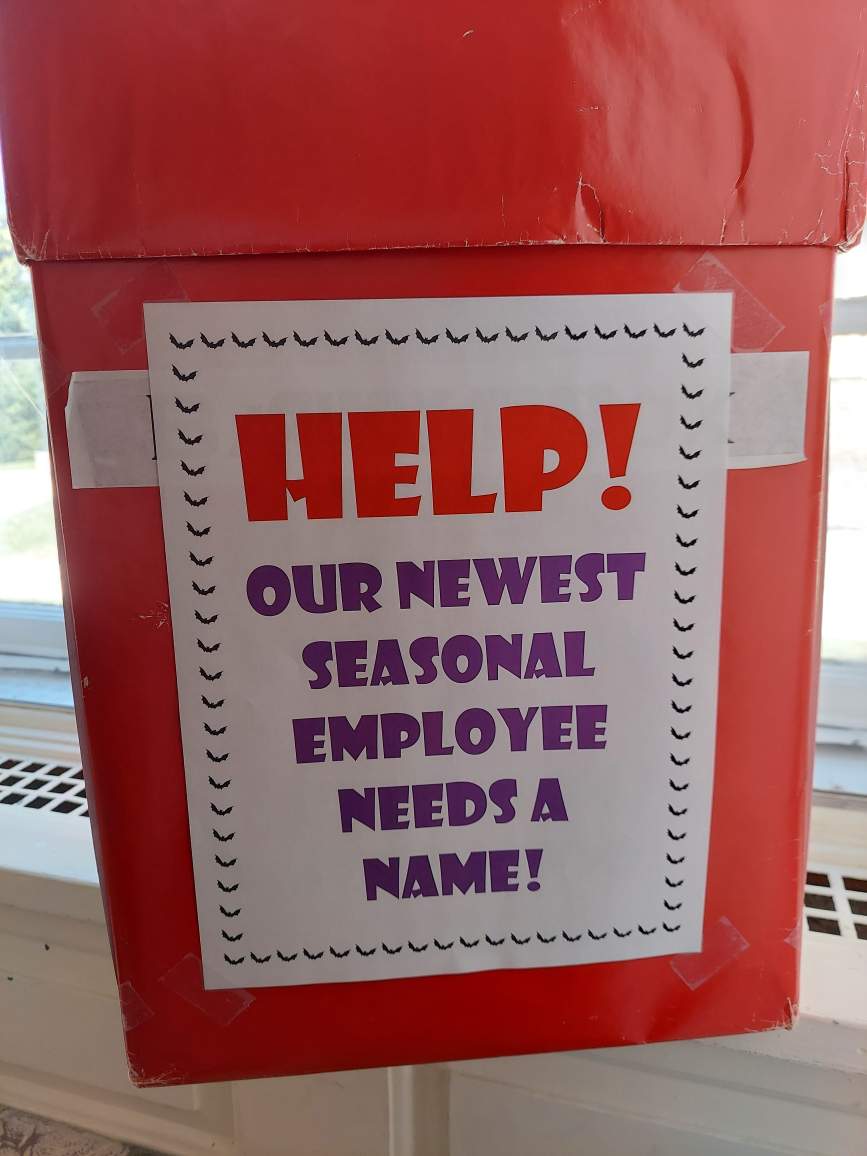 HELP!
OUR NEWEST
SEASONAL
EMPLOYEE
NEEDS A
NAME!